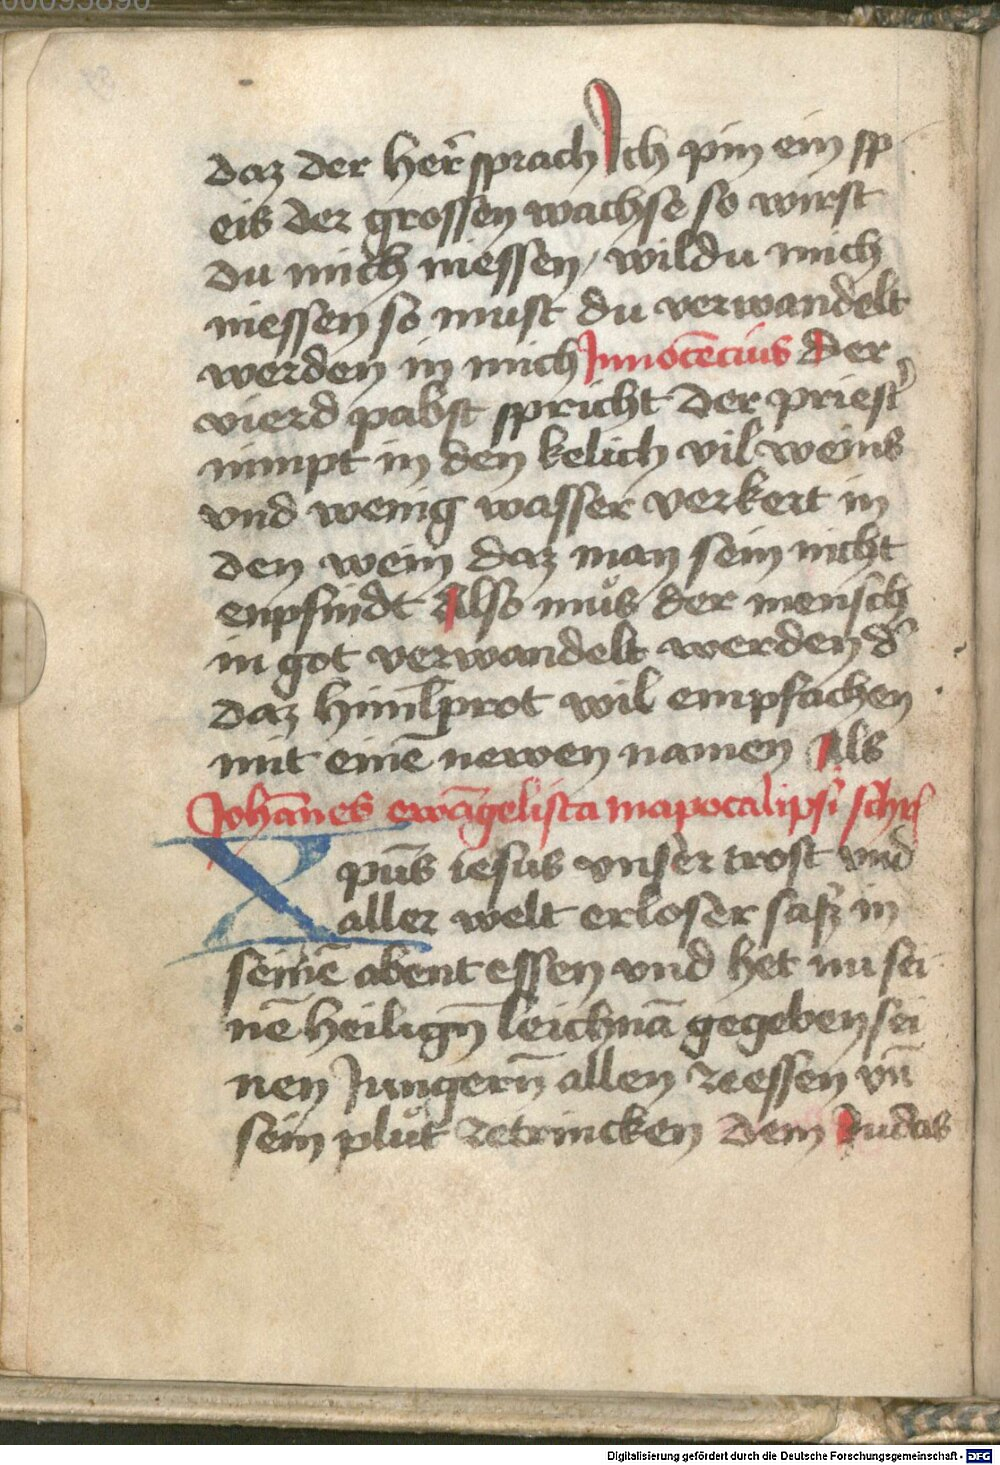 daz der her̄ sprach Ich pin ein sp
eis der grossen wachse so wirst
du mich niessen / wildu mich
niessen so must du verwandelt
werden in mich Innocēcius der
vierd pabst spricht der priest᾽
nimpt in den kelich vil weins
vnd wenig wasser verkert in
den wein daz man sein nicht
enpfindt Also muͦs der mensch
in got verwandelt werden d᾽
daz himl̄prot wil empfachen
mit einē newen namen Als
Johānes ewāgelista in apocalipsi schr
Xpūs iesus vnser trost vnd
aller welt erloser sasz in
seinē abent essen vnd het nu sei
nē heilign̄ leichnā gegeben sei
nen Jungern̄ allen zeessen vn̄
sein pluͦt zetrincken dem Judas
Digitalisierung gefördert durch die Deutsche Forschungsgemeinschaft - DFG